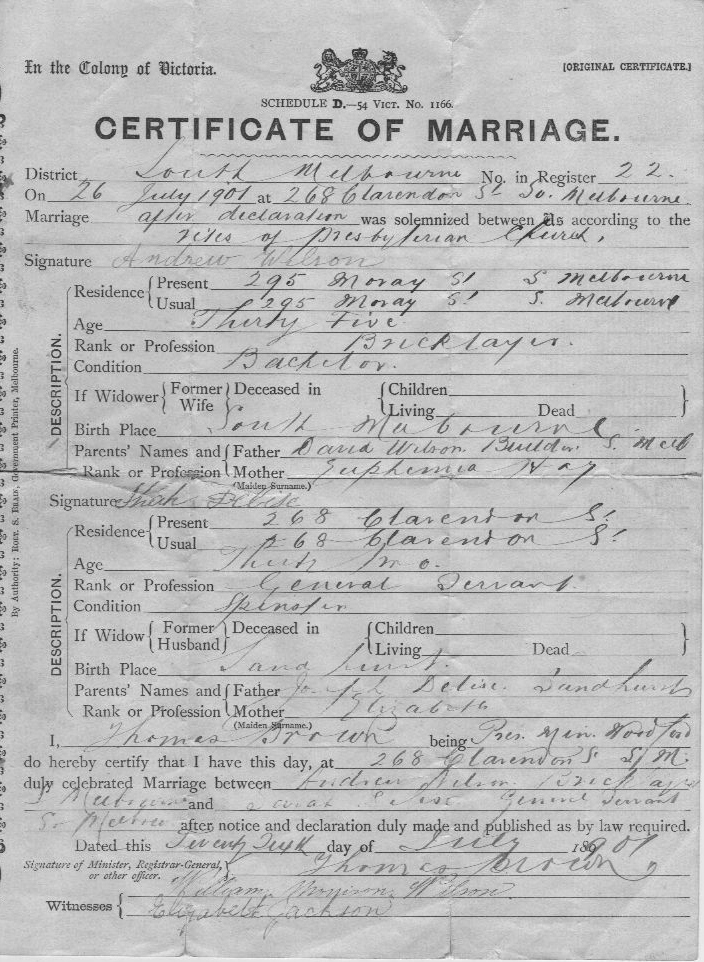 In the Colony of Victoria.
[ORIGINAL CERTIFICATE.]
SCHEDULE D.—54 VICT. No. 1166.
CERTIFICATE OF MARRIAGE.
District South Melbourne No. in Register 22.
On 26 July 1901 at 268 Clarendon St So. Melbourne
Marriage after declaration was solemnized between us according to the
rites of Presbyterian Church.
Signature Andrew Wilson
DESCRIPTION.
Residence { Present 295 Moray St S Melbourne
Usual 295 Moray St S. Melbourne
Age Thirty Five
Rank or Profession Bricklayer.
Condition Bachelor.
If Widower { Former Wife } Deceased in { Children
Living Dead }
Birth Place South Melbourne
Parents' Names and Rank or Profession { Father David Wilson Builder S. Melb
Mother Euphemia Hay
(Maiden Surname.)
Signature Delise
DESCRIPTION.
Residence { Present 268 Clarendon St
Usual 268 Clarendon St
Age Thirty Two.
Rank or Profession General Servant
Condition Spinster
If Widow { Former Husband } Deceased in { Children
Living Dead }
Birth Place Sandhurst.
Parents' Names and Rank or Profession { Father Joseph Delise. Sandhurst
Mother Elizabeth
(Maiden Surname.)
I, Thomas Brown being Pres. Min. Woodford
do hereby certify that I have this day, at 268 Clarendon S S. M.
duly celebrated Marriage between Andrew Wilson Bricklayer
S Melbourne and Sarah Delise General Servant
So Melbourne after notice and declaration duly made and published as by law required.
Dated this Twenty Sixth day of July 1901
Signature of Minister, Registrar-General, or other officer. } Thomas Brown
Witnesses { William Morison Wilson
Elizabeth Jackson
By Authority: ROBT. S. BRAIN, Government Printer, Melbourne.